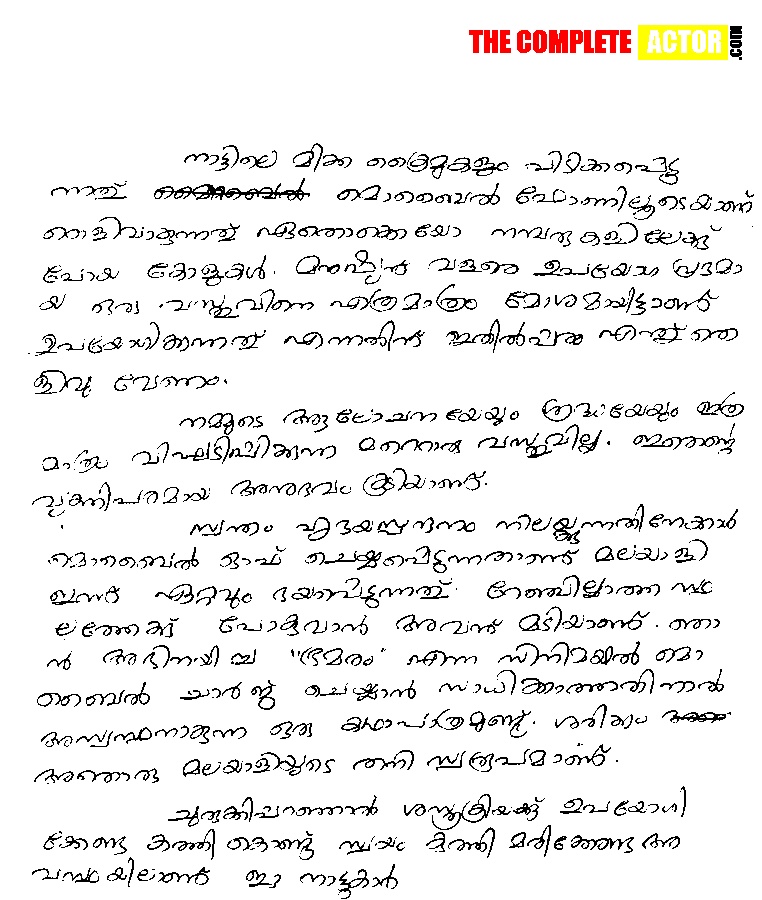 THE COMPLETE ACTOR .COM
നാട്ടിലെ മിക്ക ക്രൈമുകളും പിടിക്കപ്പെടു
ന്നത് മൊബൈൽ ഫോണിലൂടെയാണ്
തെളിവാകുന്നത് ഏതൊക്കെയോ നമ്പരുകളിലേക്ക്
പോയ കോളുകൾ. മനുഷ്യൻ വളരെ ഉപയോഗപ്രദമാ
യ ഒരു വസ്തുവിനെ എത്രമാത്രം മോശമായിട്ടാണ്
ഉപയോഗിക്കുന്നത് എന്നതിന് ഇതിൽപ്പരം എന്ത് തെ
ളിവു വേണം.
നമ്മുടെ ആലോചനയേയും ശ്രദ്ധയേയും ഇത്ര
മാത്രം വിഘടിപ്പിക്കുന്ന മറ്റൊരു വസ്തുവില്ല. ഇതെന്റെ
വ്യക്തിപരമായ അനുഭവം കൂടിയാണ്.
സ്വന്തം ഹൃദയസ്പന്ദനം നിലയ്ക്കുന്നതിനേക്കാൾ
മൊബൈൽ ഓഫ് ചെയ്യപ്പെടുന്നതാണ് മലയാളി
ഇന്ന് ഏറ്റവും ഭയപ്പെടുന്നത്. റേഞ്ചില്ലാത്ത സ്ഥ
ലത്തേക്ക് പോകുവാൻ അവന് മടിയാണ്. ഞാ
ൻ അഭിനയിച്ച "ഭ്രമരം" എന്ന സിനിമയിൽ മൊ
ബൈൽ ചാർജ്ജ് ചെയ്യാൻ സാധിക്കാത്തതിനാൽ
അസ്വസ്ഥനാകുന്ന ഒരു കഥാപാത്രമുണ്ട്. ശരിക്കും
അതൊരു മലയാളിയുടെ തനി സ്വരൂപമാണ്.
ചുരുക്കിപ്പറഞ്ഞാൽ ശസ്ത്രക്രിയക്ക് ഉപയോഗി
ക്കേണ്ട കത്തി കൊണ്ട് സ്വയം കുത്തി മരിക്കേണ്ട അ
വസ്ഥയിലാണ് ഈ നാട്ടുകാർ